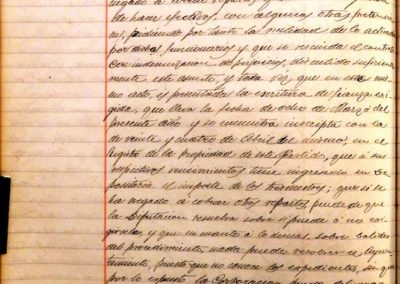 negado a cobrar
de hacer efectivos, con algunos otros
pidiendo por tanto la nulidad de lo actuado
por dichos funcionarios y que se rescinda el contrato
con indemnización de perjuicios, discutido suficiente
mente este asunto, y toda vez, que en este mis
mo acto, es presentada la escritura de fianza exi
gida, que lleva la fecha de ocho de Marzo del
presente año y se encuentra inscripta con la
de veinte y cuatro de Abril del mismo, en el
Registro de la propiedad de este Partido, que a sus
respectivos vencimientos tiene ingresado en De
positaria el importe de los trimestres; que si se
ha negado á cobrar otros repartos, pende de que
la Diputacion resuelva sobre si puede ó no exi
girselo, y que en cuanto á lo demas, sobre validez
del procedimiento, nada puede resolver el Ayun
tamiento, puesto que no conoce los expedientes,
por lo expuesto la Corporacion